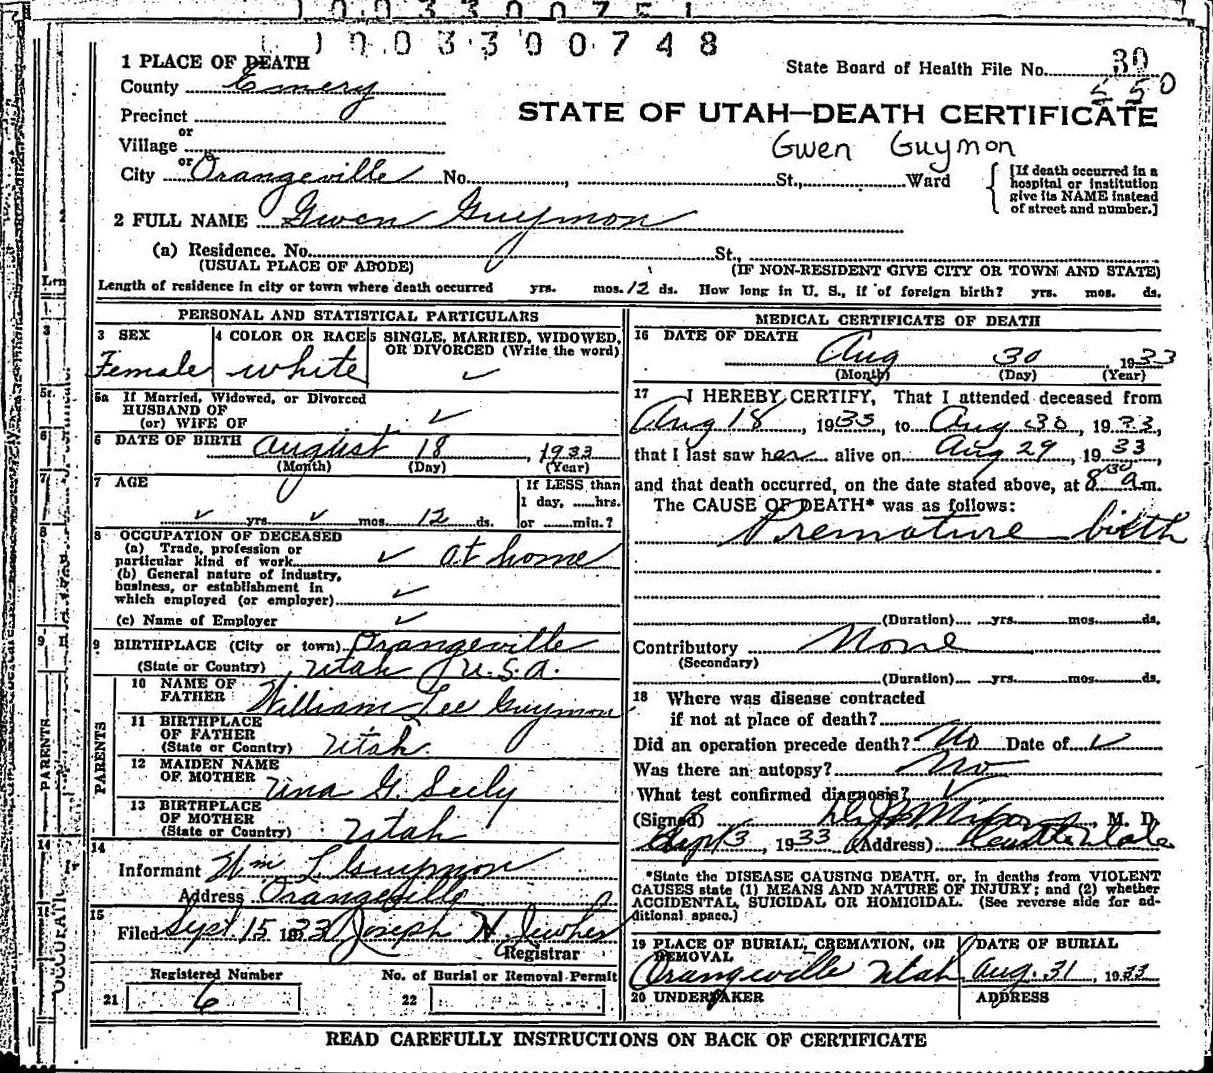 1003300748
1 PLACE OF DEATH
County Emery
State Board of Health File No. 30
550
Precinct
STATE OF UTAH—DEATH CERTIFICATE
or
Village
Gwen Guymon
or
City Orangeville No. , St., Ward
[If death occurred in a hospital or institution give its NAME instead of street and number.]
2 FULL NAME Gwen Guymon
(a) Residence. No. St.,
(USUAL PLACE OF ABODE) (IF NON-RESIDENT GIVE CITY OR TOWN AND STATE)
Length of residence in city or town where death occurred yrs. mos. 12 ds. How long in U. S., if of foreign birth? yrs. mos. ds.
PERSONAL AND STATISTICAL PARTICULARS
3 SEX
Female
4 COLOR OR RACE
white
5 SINGLE, MARRIED, WIDOWED,
OR DIVORCED (Write the word)
✓
5a If Married, Widowed, or Divorced
HUSBAND OF
(or) WIFE OF ✓
6 DATE OF BIRTH August 18, 1933
(Month) (Day) (Year)
7 AGE
If LESS than
1 day, ......hrs.
✓ yrs. ✓ mos. 12 ds. or ......min.?
8 OCCUPATION OF DECEASED
(a) Trade, profession or
particular kind of work ✓ at home
(b) General nature of industry,
business, or establishment in
which employed (or employer) ✓
(c) Name of Employer ✓
9 BIRTHPLACE (City or town) Orangeville
(State or Country) Utah U.S.A.
PARENTS
10 NAME OF
FATHER William Lee Guymon
11 BIRTHPLACE
OF FATHER
(State or Country) Utah
12 MAIDEN NAME
OF MOTHER Una G. Seely
13 BIRTHPLACE
OF MOTHER
(State or Country) Utah
14
Informant Wm L. Guymon
Address Orangeville
15
Filed Sept. 15 1933 Joseph H. Jewkes
Registrar
Registered Number No. of Burial or Removal Permit
21 6 22
MEDICAL CERTIFICATE OF DEATH
16 DATE OF DEATH
Aug 30 1933
(Month) (Day) (Year)
17 I HEREBY CERTIFY, That I attended deceased from
Aug 18, 1933, to Aug 30, 1933,
that I last saw her alive on Aug 29, 1933,
and that death occurred, on the date stated above, at 8 30 a.m.
The CAUSE OF DEATH* was as follows:
Premature birth
(Duration) yrs. mos. ds.
Contributory None
(Secondary)
(Duration) yrs. mos. ds.
18 Where was disease contracted
if not at place of death?
Did an operation precede death? No Date of ✓
Was there an autopsy? No
What test confirmed diagnosis? ✓
(Signed) , M. D.
Sept 3, 1933 (Address) Castle Dale
*State the DISEASE CAUSING DEATH, or, in deaths from VIOLENT
CAUSES state (1) MEANS AND NATURE OF INJURY; and (2) whether
ACCIDENTAL, SUICIDAL OR HOMICIDAL. (See reverse side for ad-
ditional space.)
19 PLACE OF BURIAL, CREMATION, OR
REMOVAL
Orangeville Utah
DATE OF BURIAL
Aug. 31, 1933
20 UNDERTAKER ADDRESS
READ CAREFULLY INSTRUCTIONS ON BACK OF CERTIFICATE